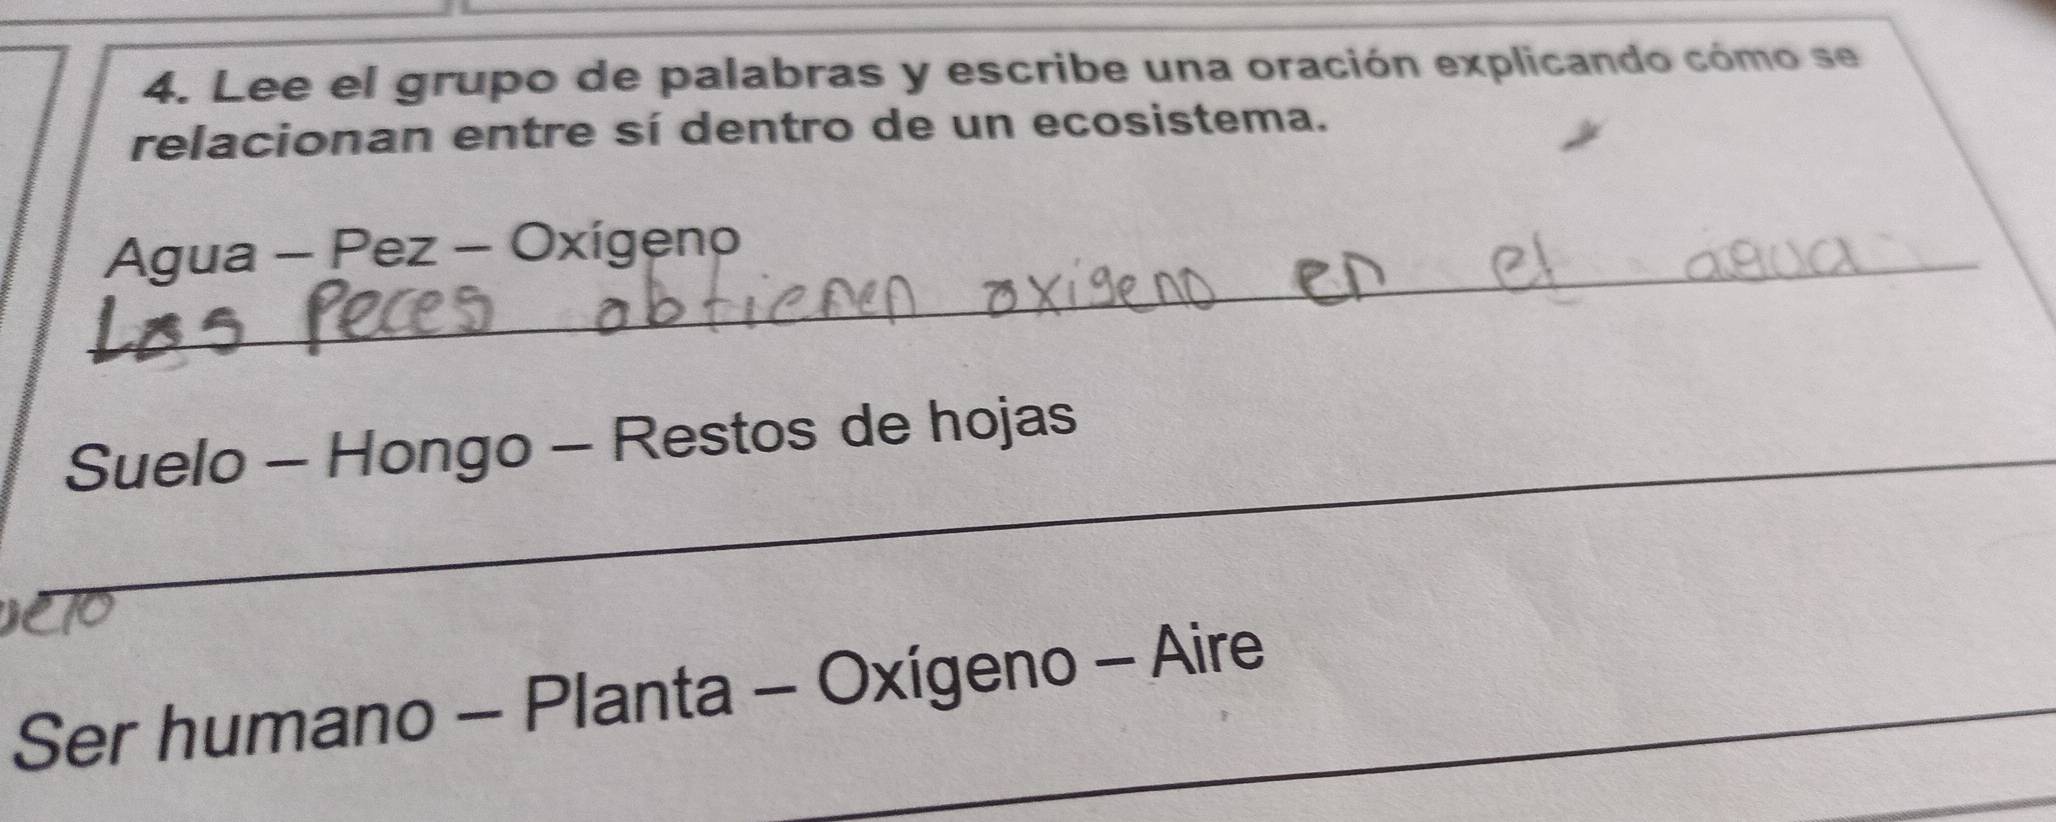 4. Lee el grupo de palabras y escribe una oración explicando cómo se
relacionan entre sí dentro de un ecosistema.
Agua – Pez – Oxígeno
Los Peces obtienen oxigeno en el agua
Suelo – Hongo – Restos de hojas
uelo
Ser humano – Planta – Oxígeno – Aire